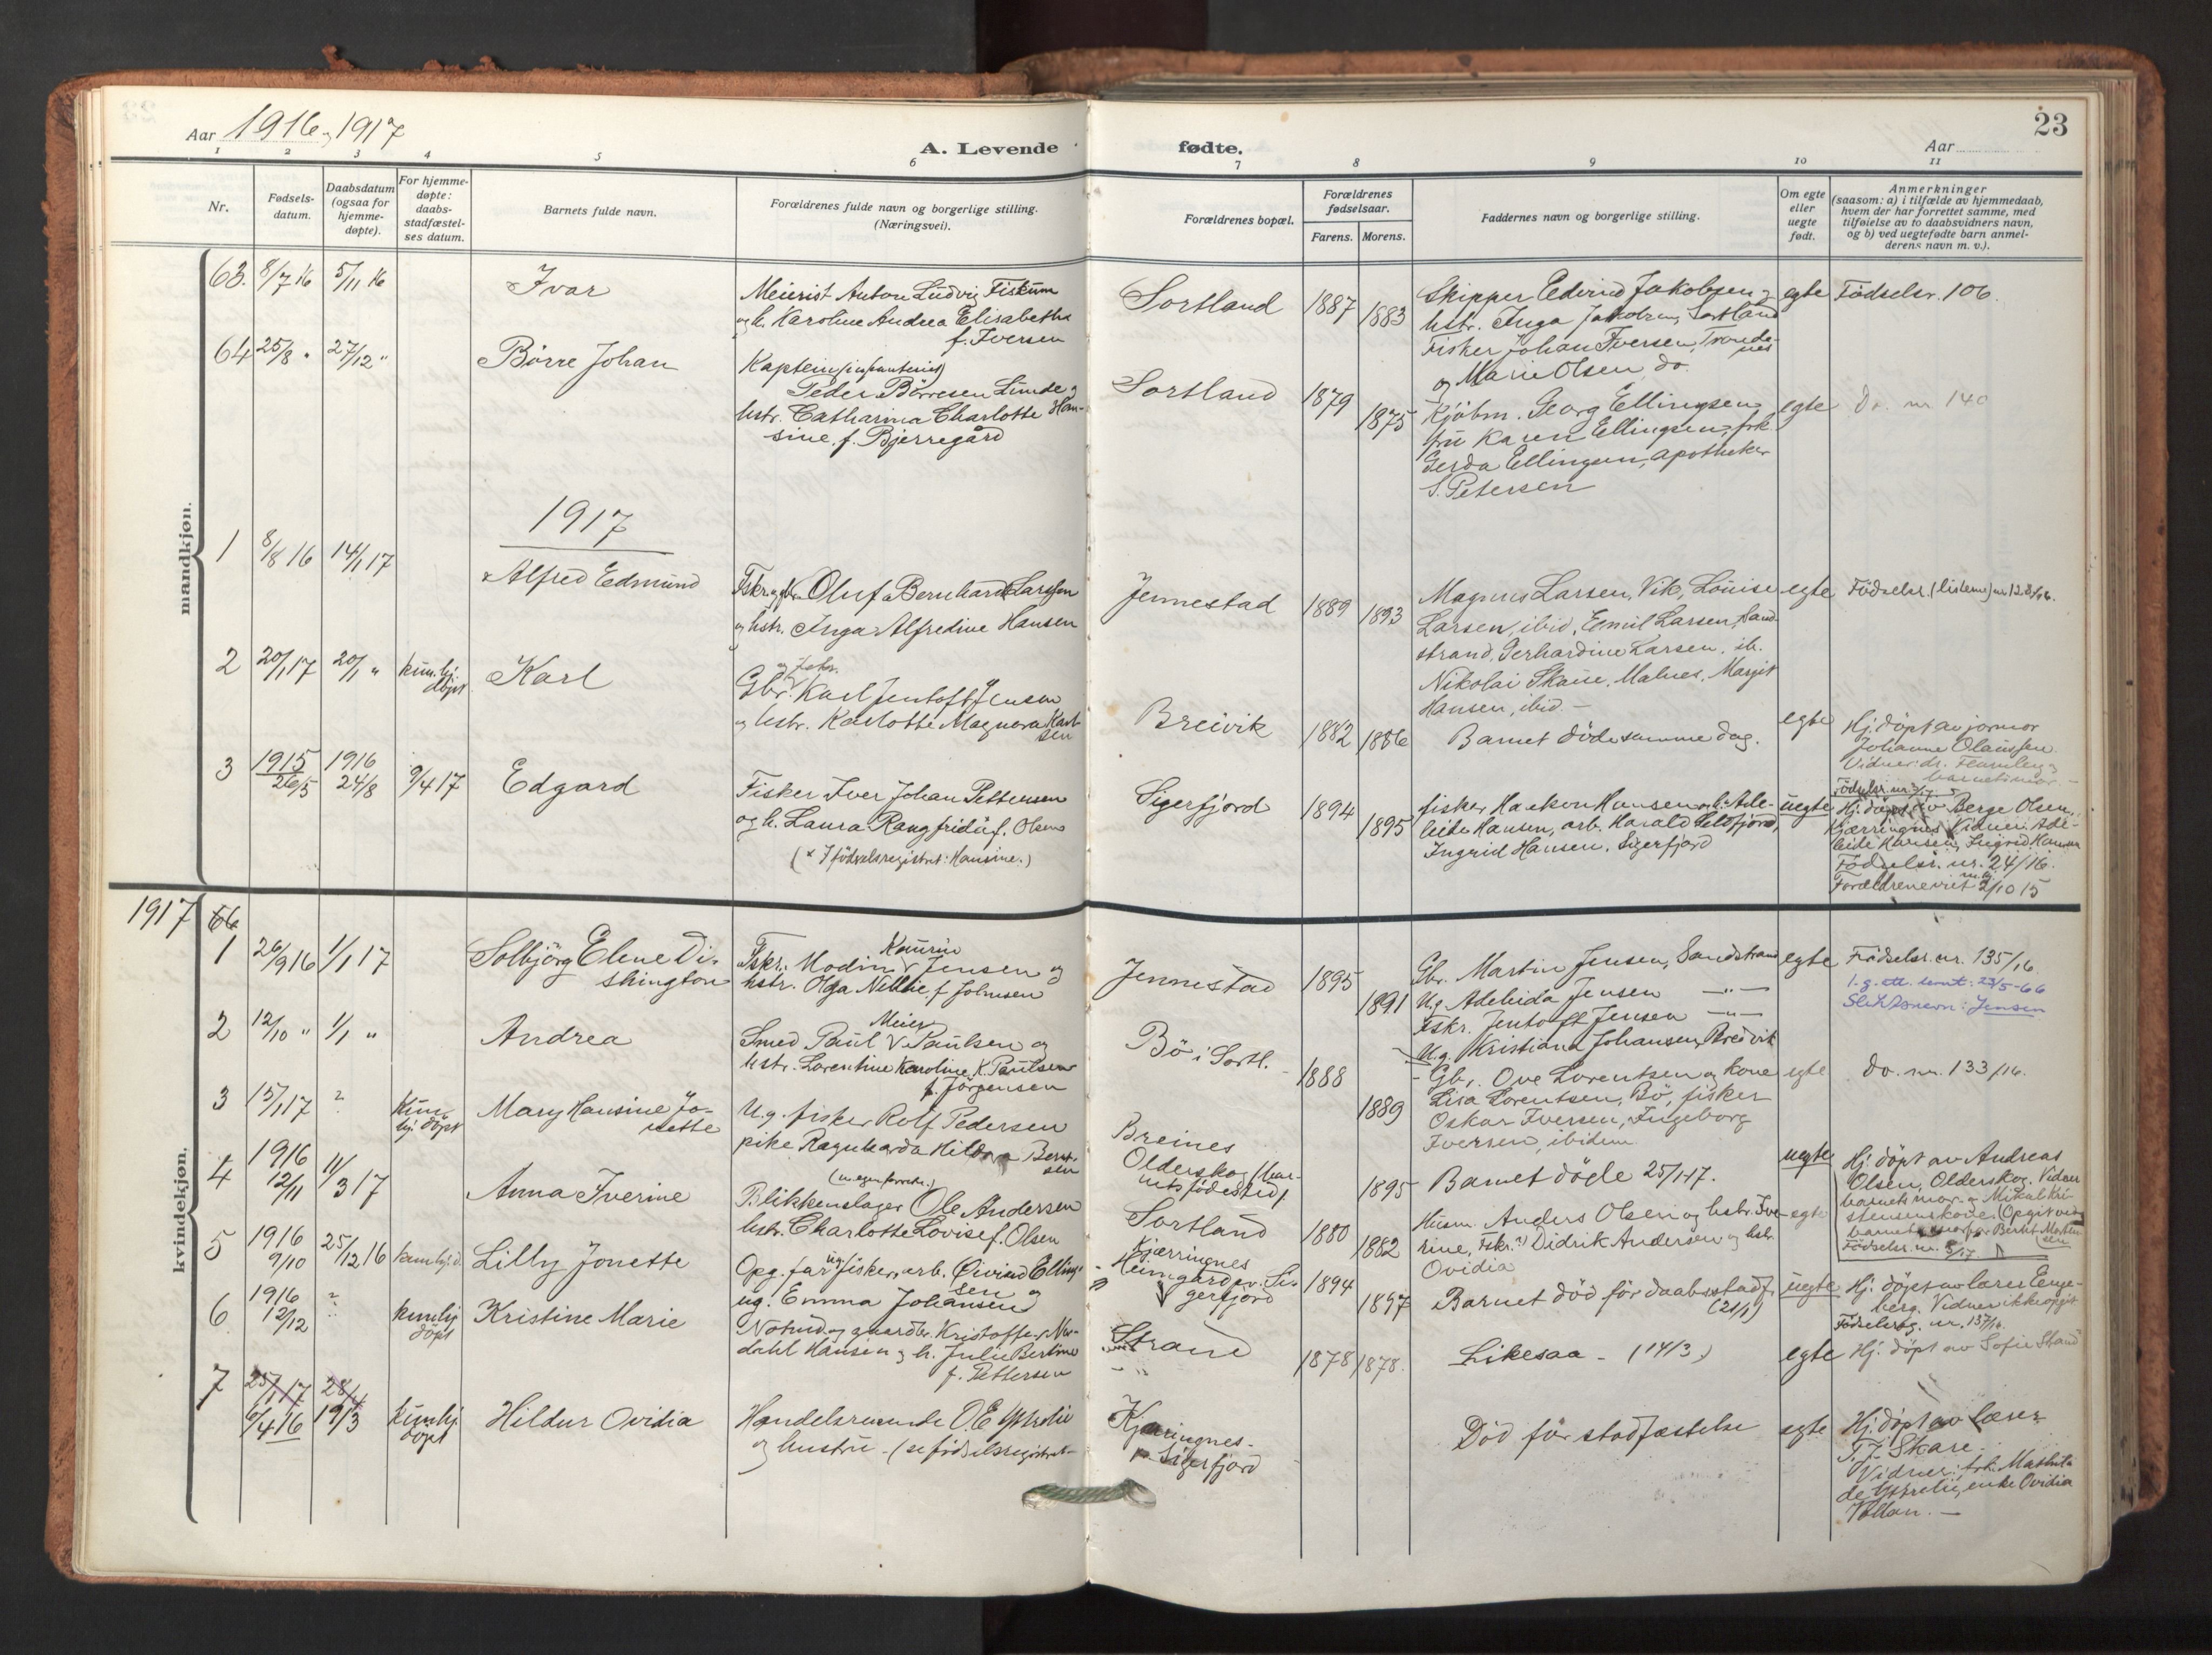 23
Aar 1916, 1917
A. Levende fødte.
Aar
1 2 3 4 5 6 7 8 9 10 11
Nr.
Fødsels-
datum.
Daabsdatum
(ogsaa for
hjemme-
døpte).
For hjemme-
døpte:
daabs-
stadfæstel-
ses datum.
Barnets fulde navn.
Forældrenes fulde navn og borgerlige stilling.
(Næringsvei).
Forældrenes bopæl.
Forældrenes
fødselsaar.
Farens. Morens.
Faddernes navn og borgerlige stilling.
Om egte
eller
uegte
født.
Anmerkninger
(saasom: a) i tilfælde av hjemmedaab,
hvem der har forrettet samme, med
tilføielse av to daabsvidners navn,
og b) ved uegtefødte barn anmel-
derens navn m. v.).
mandkjøn.
63. 8/7 16 5/11 16
Ivar
Meierist Anton Ludvig Fiskum
og h. Karoline Andrea Elisabeth
f. Iversen
Sortland
1887 1883
Skipper Edvind Jakobsen og
hstr. Inga Jakobsen, Sortland
Fisker Johan Iversen, Tronde-
nes
og Marie Olsen do.
egte
Födselsr. 106.
64 25/8 " 27/12 "
Börre Johan
Kaptein (infanteriet)
Peder Börresen Lunde og
hstr. Catharina Charlotte Han-
sine f. Bjerregård
Sortland
1879 1875
Kjöbm. Georg Ellingsen
fru Karen Ellingsen, frk.
Gerda Ellingsen, apotheker
S. Petersen
egte
do. nr 140
1917
1 8/8 16 14/1 17
Alfred Edmund
Fskr. og gbr. Oluf Bernhard Larssen
og hstr. Inga Alfredine Hansen
Jennestad
1889 1893
Magnus Larsen, Vik, Louise
Larsen, ibid, Emil Larsen, Sand-
strand, Gerhardine Larsen, ib.
Nikolai Skaue, Malnes, Margit
Hansen, ibid. -
egte
Födselsr. (listerne) nr 128/16.
2 20/1 17 20/1 " kun hj.
döpt
Karl
Gbr. Karl Jentoft Jensen
og hstr. Karlotte Magnora Karl-
sen
Breivik
1882 1886
Barnet döde samme dag.
egte
Hj. döpt av jormor
Johanne Olaussen.
3 1915 26/5 1916 24/8 9/4 17
Edgard
Fisker Iver Johan Pettersen
og h. Laura Rangfrida f. Olsen
(x I födselsregistret: Hansine.)
Sigerfjord
1894 1895
fisker Haakon Hansen og h. Ade-
leide Hansen, arb. Harald Seldfjord,
Ingrid Hansen, Sigerfjord
uegte
Hj. döpt av Berge Olsen,
Kjærringnes Vidner: Ade-
leide Hansen, Ingrid Hansen
Födselsr. nr. 24/16.
Forældrene viet 2/10 15
1917
kvindekjøn.
1 26/9 16 1/1 17
Solbjörg Elene Di-
shington
Kaurin
Fskr. Modin V Jensen og
hstr. Olga Nillie f. Johnsen
Jennestad
1895 1891
Gbr. Martin Jensen, Sandstrand
Ug. Adeleida Jensen -"-
Fskr. Jentoft Jensen -"-
U.g. Kristiana Johansen, Breivik
egte
Födselsr. nr. 135/16
Slektsnavn: Jensen
2 12/10 " 1/1 "
Andrea
Meier
Smed Paul V Paulsen og
hstr. Lorentine Karoline K. Paulsen
f. Jörgensen
Bö i Sortl.
1888 1889
Gbr. Ove Lorentsen og kone
Lisa Lorentsen, Bö, fisker
Oskar Iversen, Ingeborg
Iversen, ibidem
egte
do. nr. 133/16.
3 15/1 17 ? Kun
hj. döpt
Mary Hansine Jo-
nette
U.g. fisker Rolf Pedersen
pike Ragnharda Hildora Bernt-
sen
Breines
Olderskog (bar-
nets födested)
1895
Barnet döde 25/1-17.
uegte
Hj. döpt av Andreas
Olsen, Olderskog. Vidner
barnets mor og Mikal Kri-
stensens kone.
Födselsr. nr. 5/17
4 1916 12/11 11/3 17
Anna Iverine
Blikkenslager Ole Andersen
hstr. Charlotte Lovise f. Olsen
Sortland
1880 1882
Husm. Anders Olsen og hstr. Ive-
rine, Fskr. Didrik Andersen og hstr.
Ovidia
egte
5 1916 9/10 25/12 16 kun hj. d.
Lilly Jonette
Opg. far ug fisker, arb. Öivind Elling-
sen og
ug. Emma Johansen
Kjærringnes
Heimgård pr. Si-
gerfjord
1894 1897
Barnet död för daabsstadf.
(21/1)
uegte
Hj. döpt av lærer Enge-
berg. Vidner ikke opgit
Födselsreg. nr. 137/16.
6 1916 12/12 ? kun hj
döpt
Kristine Marie
Notmd. og gaardbr. Kristoffer Nor-
dahl Hansen og h. Julie Bertine
f. Pettersen
Strand
1878 1878.
Likesaa - (14/3)
egte
Hj. döpt av Sofie Strand
7 25/1 17 28/1
6/4 16 19/3 kun hj.
döpt
Hildur Ovidia
Handelsreisende O. E. Ystrelie
og hustru - (se födselsregistret-
Kjærringnes-
pr. Sigerfjord
Död för stadfæstelse
egte
Hj. döpt av lærer
T. J. Skare.
Vidner: frk. Mathil-
de Ystrelie, enke Ovidia
Vollan. -